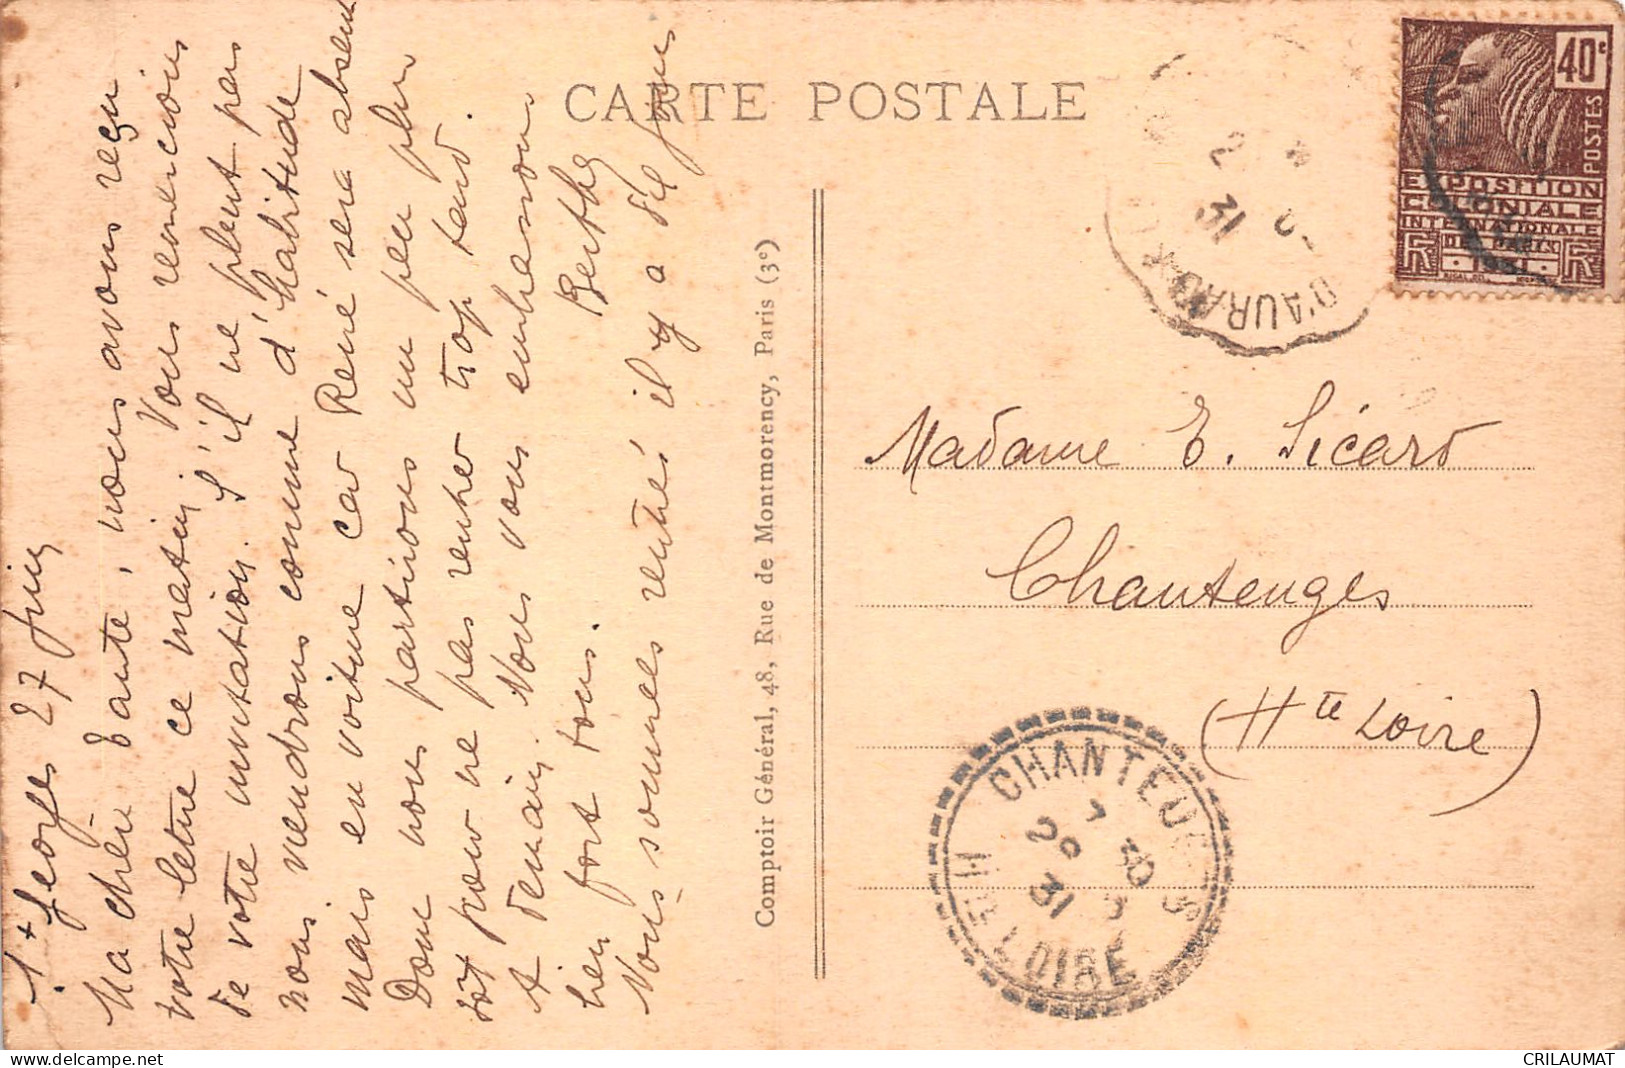 CARTE POSTALE
St Georges 27 juin
Ma chère Tante, nous avons reçu
votre lettre ce matin. Vous remercions
de votre invitation. S'il ne pleut pas
nous viendrons comme d'habitude
mais en voiture car René sera absent
Donc nous partirons un peu plus
tôt pour ne pas rentrer trop tard.
A demain. Nous vous embrassons
bien fort tous. Berthe
Nous sommes rentrés il y a dix jours
Comptoir Général, 48, Rue de Montmorency, Paris (3e)
40c
POSTES
EXPOSITION
COLONIALE
INTERNATIONALE
DE PARIS
RF 1931 RF
2
31
D'AURAC
Madame E. Sicard
Chantenges
(Hte Loire)
CHANTEUGES
31
HTE LOIRE
delcampe.net
CRILAUMAT